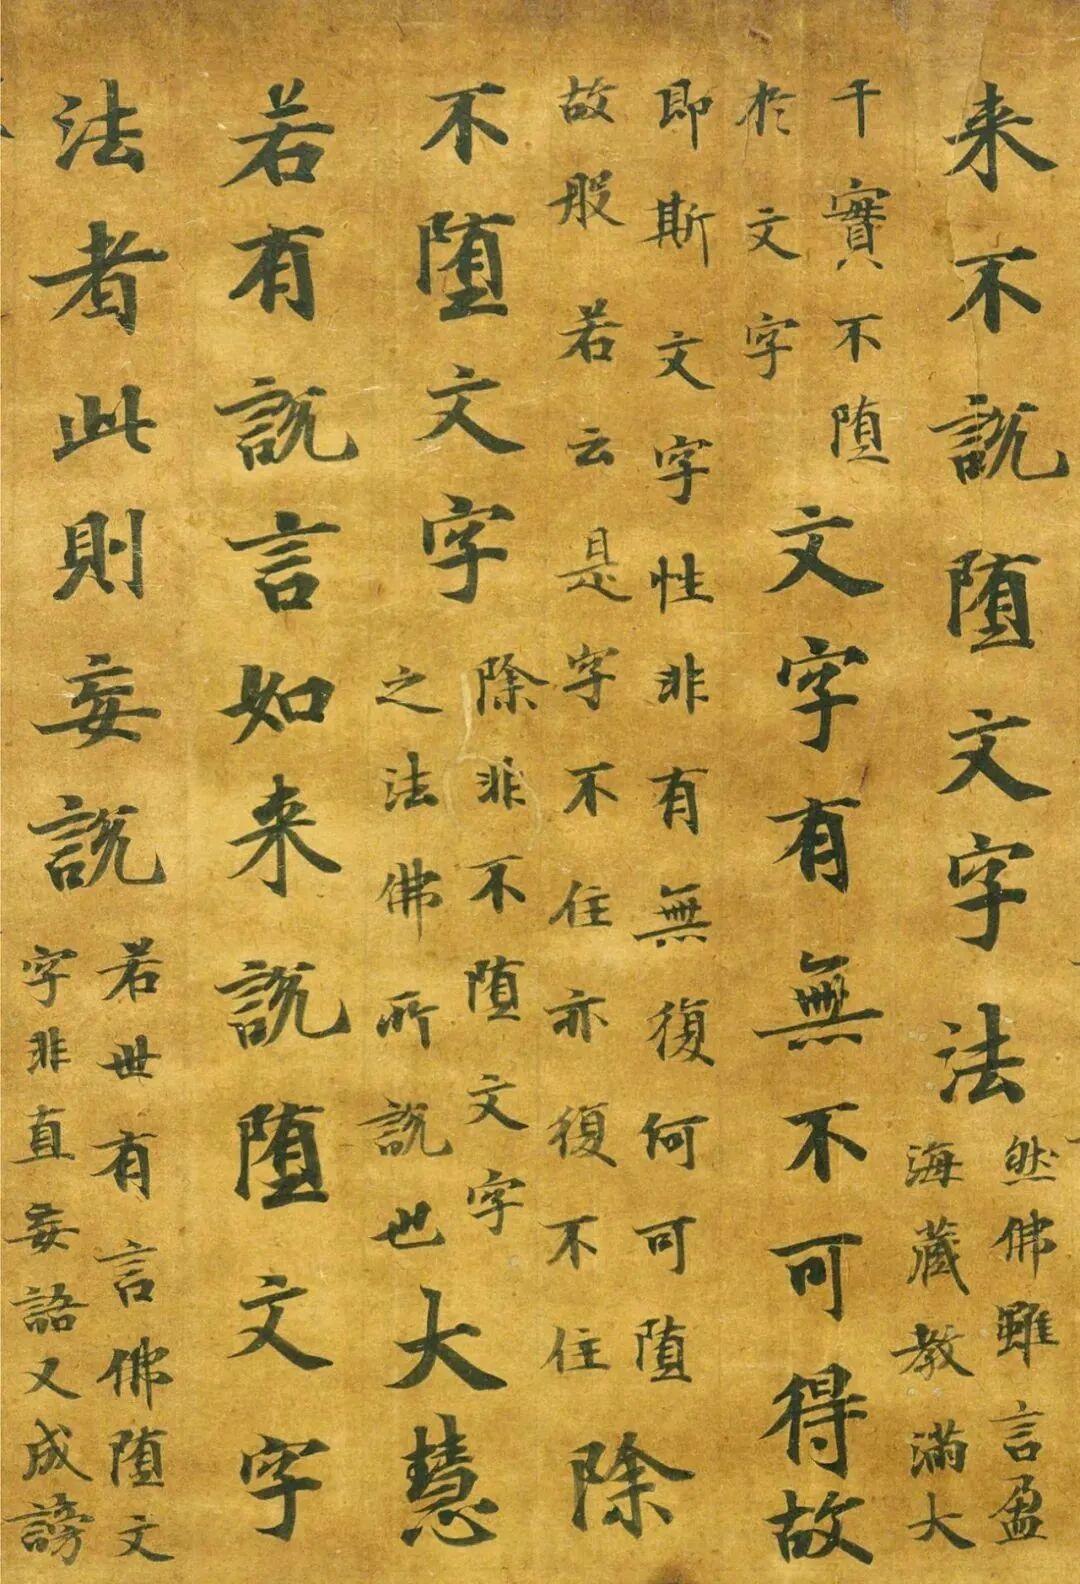 来不説堕文字法
然佛雖言盈
海藏教滿大
千實不堕
於文字
文字有無不可得故
即斯文字性非有無復何可堕
故般若云是字不住亦復不住
除
不堕文字
除非不堕文字
之法佛所説也
大慧
若有説言如来説堕文字
法者此則妄説
若世有言佛堕文
字非直妄語又成謗